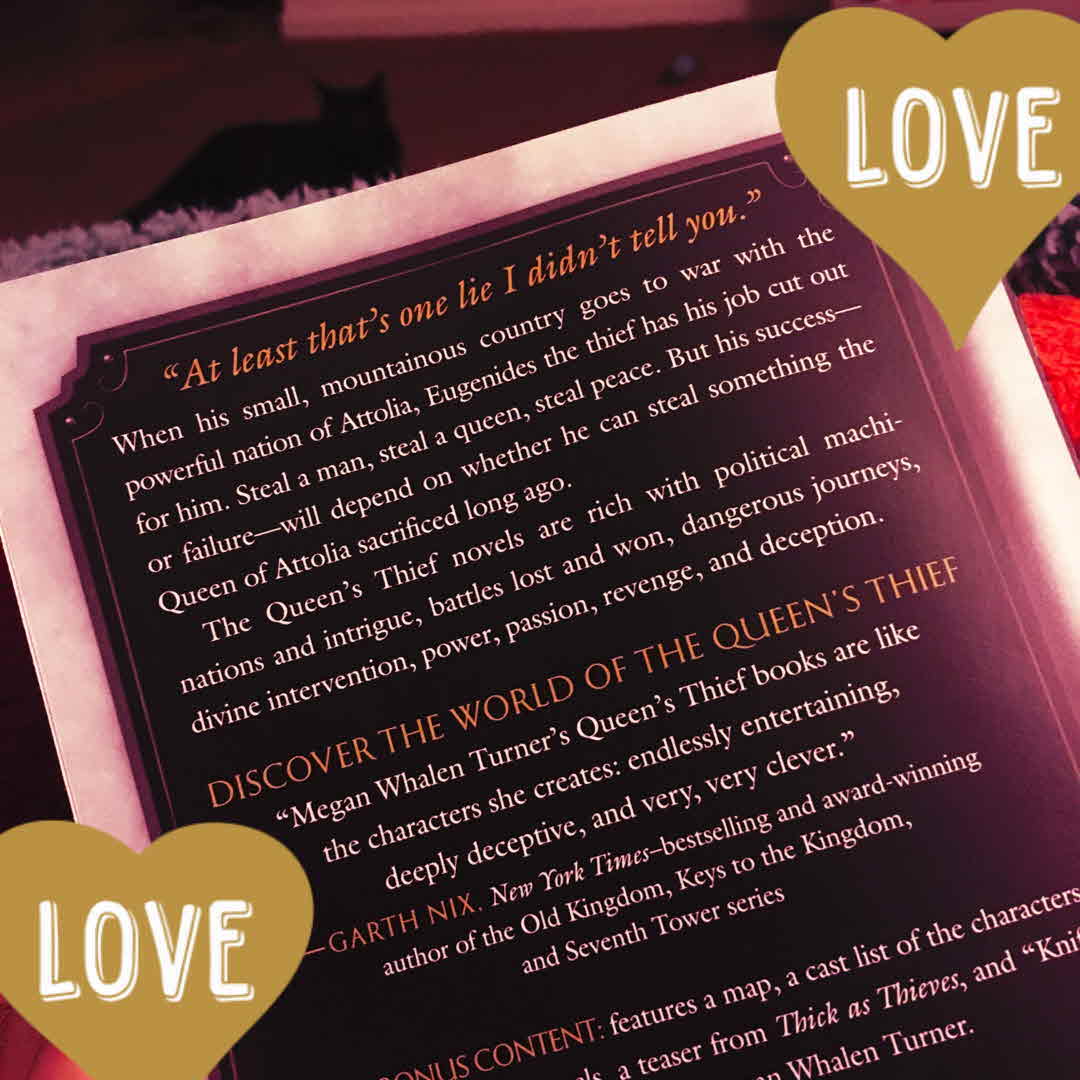 LOVE
"At least that's one lie I didn't tell you."
When his small, mountainous country goes to war with the
powerful nation of Attolia, Eugenides the thief has his job cut out
for him. Steal a man, steal a queen, steal peace. But his success—
or failure—will depend on whether he can steal something the
Queen of Attolia sacrificed long ago.
The Queen's Thief novels are rich with political machi-
nations and intrigue, battles lost and won, dangerous journeys,
divine intervention, power, passion, revenge, and deception.
DISCOVER THE WORLD OF THE QUEEN'S THIEF
"Megan Whalen Turner's Queen's Thief books are like
the characters she creates: endlessly entertaining,
deeply deceptive, and very, very clever."
—GARTH NIX, New York Times–bestselling and award-winning
author of the Old Kingdom, Keys to the Kingdom,
and Seventh Tower series
LOVE
CONTENT: features a map, a cast list of the characters
a teaser from Thick as Thieves, and
Whalen Turner.